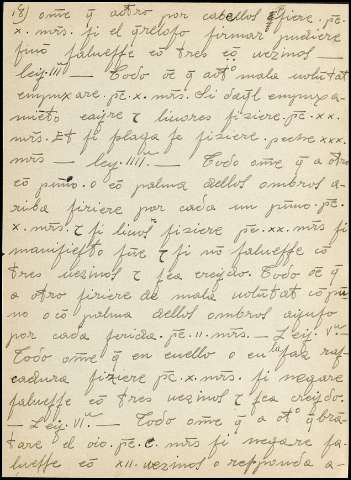 18) om̄e q̄ a otro por cabellos firiere. pe.
x. mr̄s. si el q̄reloso firmar pudiere
sinō salvesse cō tres cō vezinos —
leij. IIIᵃ — Todo oē q̄ a otº mala volūtat
empuxare. pe. x. mr̄s. Si daq̄l empuxa-
mieto caijre τ livores fiziere. pe. xx.
mr̄s. Et si plaga fe fiziere peche xxx.
mr̄s — leij. IIIIᵃ. — Todo om̄e q̄ a otro
cō puño. o cō palma dellos ombros a-
riba firiere por cada un puño. pe.
x. mr̄s. τ si livores fiziere pe. xx. mr̄s si
manifiesto fue τ si nō salvesse cō
tres vezinos τ sea creijdo. Todo oē q̄
a otro firiere de mala volūtat cō pu-
no o cō palma dellos ombros aijuso
por cada ferida. pe. II. mr̄s. — Leij. Vᵃ —
Todo om̄e q̄ en cuello o en la faz ras-
cadura fiziere pe. x. mr̄s. si negare
salvesse cō tres vezinos τ sea creijdo.
— Leij. VIᵃ — Todo om̄e q̄ a otº q̄brā-
tare el oio. pe. c. mr̄s si negare sa-
lvesse cō XII. vezinos o responda a-